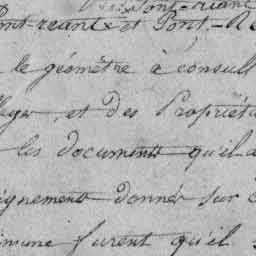 Pont-riant
ont-reant et Pont-R
le géomètre à consult
llage, et des Propriéta
les documents qu'il a
ignements donnés sur
imune furent qu'il